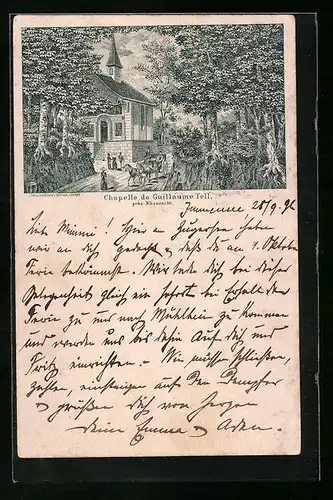 Chapelle de Guillaume Tell,
près Küssnacht.
Immensee 28/9. 92
Liebe Mimmi! Hier am Zugersee haben
wir an dich gedacht, daß du am 1. Oktober
Ferien bekömmst. Wir bitte dich bei dieser
Gelegenheit gleich ein sofort bei Erhalt der
Ferien zu uns nach Mühlein zu kommen
und werden uns bis dahin auf dich und
Fritz einrichten. Wir müssen schließen,
zahlen, einsteigen auf den Dampfer
& grüßen dich von Herzen
deine Emma &